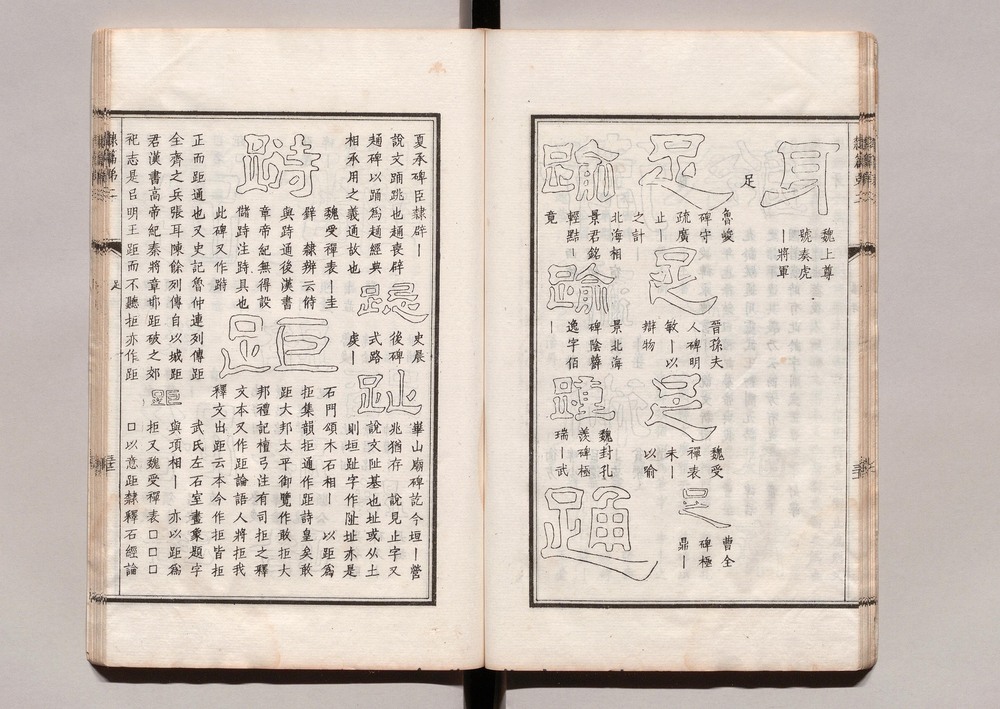 耳
魏上尊
號奏虎
｜將軍
足
足
魯峻
碑守
疏廣
止｜
之計
足
晉孫夫
人碑明
敏｜以
辯物
足
魏受
禪表
未｜
以喻
足
曹全
碑極
鼎｜
踰
北海相
景君銘
輕黠｜
竟
踰
景北海
碑陰薛
逸字佰
｜
踵
魏封孔
羨碑極
瑞｜武
踊
夏承碑臣隸辟｜
說文踊跳也喪辟
碑以踊為經典
相承用之義通故也
跽
史晨
後碑
式路
虔｜
趾
華山廟碑訖今垣｜營
兆猶存　說見止字又
說文阯基也址或从土
則垣趾字作阯址亦是
跱
魏受禪表｜圭
錍　隸辨云偫
與跱通後漢書
章帝紀無得設
儲跱注跱具也
此碑又作跱
距
石門頌木石相｜　以距為
拒集韻拒通作距詩皇矣敢
距大邦太平御覽作敢拒大
邦禮記檀弓注有司拒之釋
文本又作距論語人將拒我
釋文出距云本今作拒皆拒
正而距通也又史記魯仲連列傳距
全齊之兵張耳陳餘列傳自以城距
君漢書高帝紀秦將章邯距破之郊
祀志是㠯明王距而不聽拒亦作距
距
武氏左石室畫象題字
與項相｜　亦以距為
拒又魏受禪表口口口
口以意距隸釋石經論
足